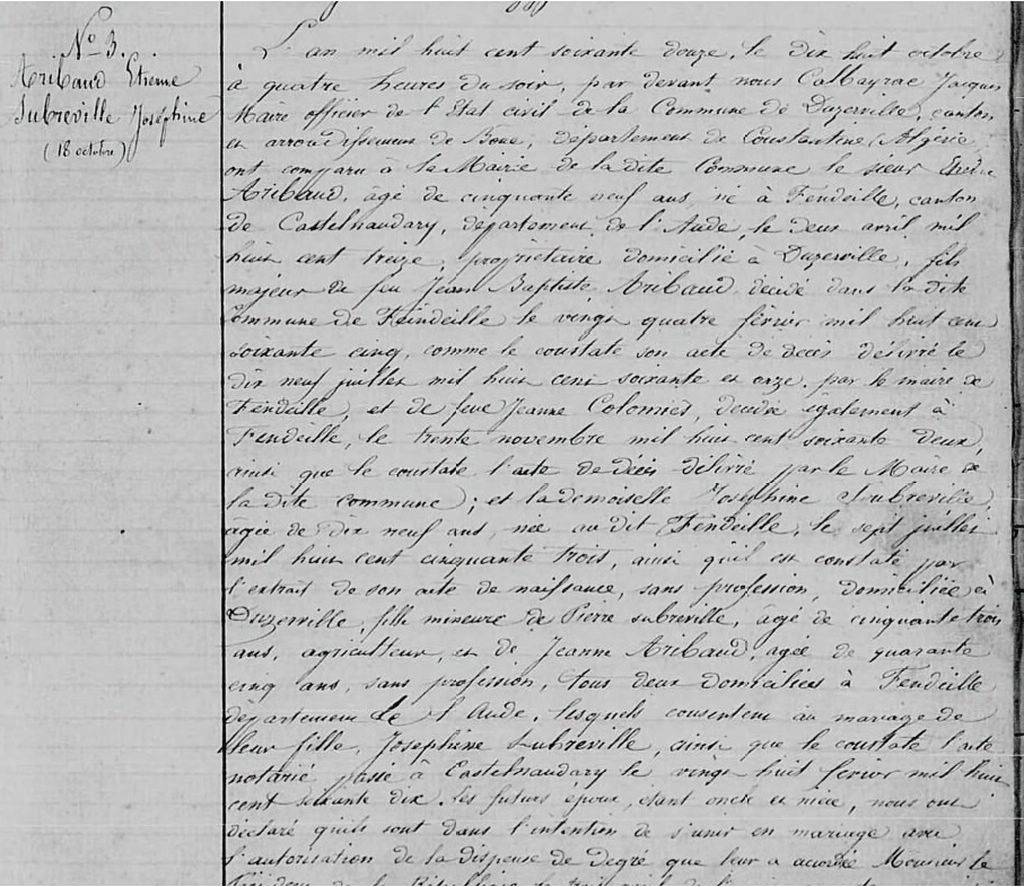 N° 3.
Aribaud Etienne
Subreville Joséphine
(18 octobre)
L'an mil huit cent soixante douze, le dix huit octobre
à quatre heures du soir, par devant nous Calbayrac Jacques
Maire officier de l'Etat civil de la Commune de Duzerville, canton
et arrondissement de Bone, département de Constantine (Algérie
ont comparu à la Mairie de la dite Commune le sieur
Aribaud, âgé de cinquante neuf ans, né à Fendeille, canton
de Castelnaudary, département de l'Aude, le deux avril mil
huit cent treize, propriétaire domicilié à Duzerville, fils
majeur de feu Jean Baptiste Aribaud, décédé dans la dite
Commune de Feindeille le vingt quatre février mil huit cent
soixante cinq, comme le constate son acte de décès délivré le
dix neuf juillet mil huit cent soixante et onze, par le maire de
Fendeille, et de feue Jeanne Colomiès, décédée également à
Fendeille, le trente novembre mil huit cent soixante deux,
ainsi que le constate l'acte de décès délivré par le Maire de
la dite commune; et la demoiselle Joséphine Subreville,
agée de dix neuf ans, née au dit Fendeille, le sept juillet
mil huit cent cinquante trois, ainsi qu'il est constaté par
l'extrait de son acte de naissance, sans profession, domiciliée à
Duzerville, fille mineure de Pierre Subreville, âgé de cinquante trois
ans, agriculteur, et de Jeanne Aribaud, agée de quarante
cinq ans, sans profession, tous deux domiciliés à Fendeille
département de l'Aude, lesquels consentent au mariage de
leur fille, Joséphine Subreville, ainsi que le constate l'acte
notarié passé à Castelnaudary le vingt huit février mil huit
cent soixante dix. Les futurs époux, étant oncle et nièce, nous ont
déclaré qu'ils sont dans l'intention de s'unir en mariage avec
l'autorisation de la dispense de degré que leur a accordée Monsieur le